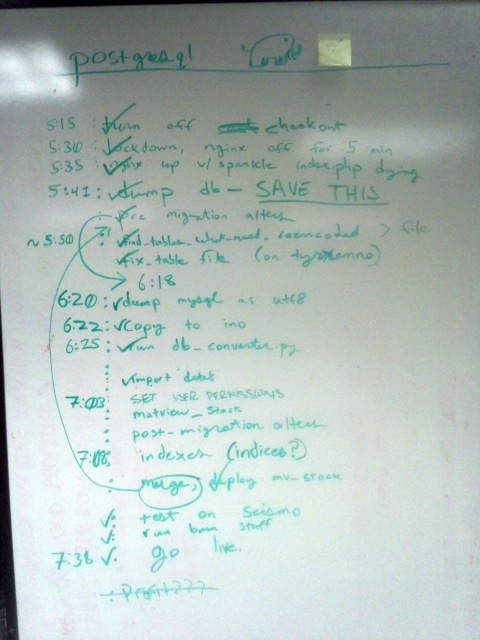 postgresql
5:15 : turn off checkout
5:30 : lockdown, nginx off for 5 min
5:35 : nginx up w/ sparkle index.php dying
5:41 : dump db - SAVE THIS
: pre migration alters
~5:50 : find_tables_what_need_reencoded > file
: fix_table file (on tyroxenno)
6:18
6:20 : dump mysql as utf8
6:22 : copy to ino
6:25 : run db_converter.py
: import data
7:03 SET USER PERMISSIONS
: matview_stock
: post-migration alters
7:08 indexes (indices?)
: merge, deploy mv-stock
: test on seismo
: run bman stuff
7:36 : go live.
: Profit???